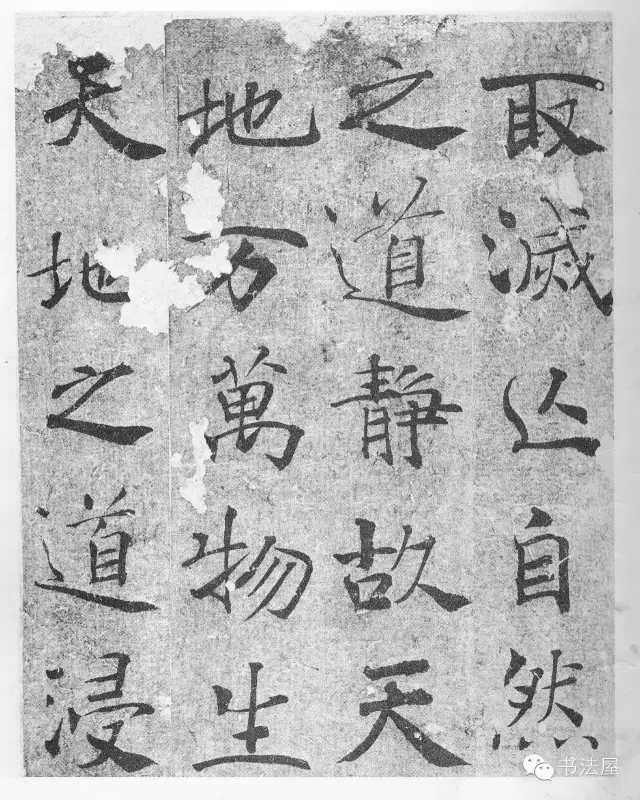 取滅亾自然
之道静故天
地万萬物生
天地之道浸
书法屋